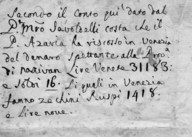 Secondo il conto qui dato dal
D. Miro Savoteli costa che il
D. Azavia ha riscosso in Venezia
del denaro spettante alla
di Lire Venete 31183:
e soldi 16. Li quali in Venezia
fanno zecchini 1418.
e Lire nove.